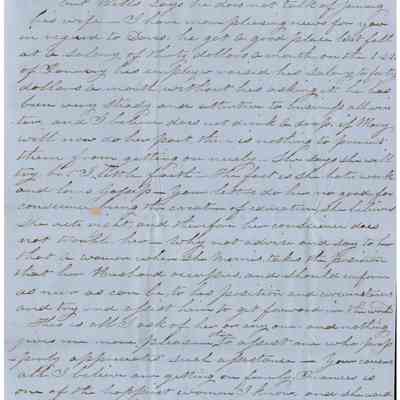 but Willis says he does not talk of joining
his wife - I have some pleasing news for you
in regard to Dens. he got a good place last fall
at a salary of thirty dollars a month on the 1st
of January his employer raised his salary to forty
dollars a month without his asking it he has
been very steady and attentive to business all win
ter and I believe does not drink a drop, if Mary
will now do her part there is nothing to prevent
them from getting on nicely - She says she will
try but I little faith - The fact is she hates work
and loves Gossip - Your letters do her no good for
she
she acts right and therefore her conscience does
not trouble her - Why not advise and say to her
that a woman when she marries takes the position
that her Husband occupies, and should conform
as near as can be to his position and circumstances
and try and assist him to get forward in the world
This is all I ask of her or any one and nothing
gives me more pleasure than to assist one who prop
perly appreciates such assistance - Your cousins
all I believe are getting on finely Frances is
one of the happiest women I know, and she and